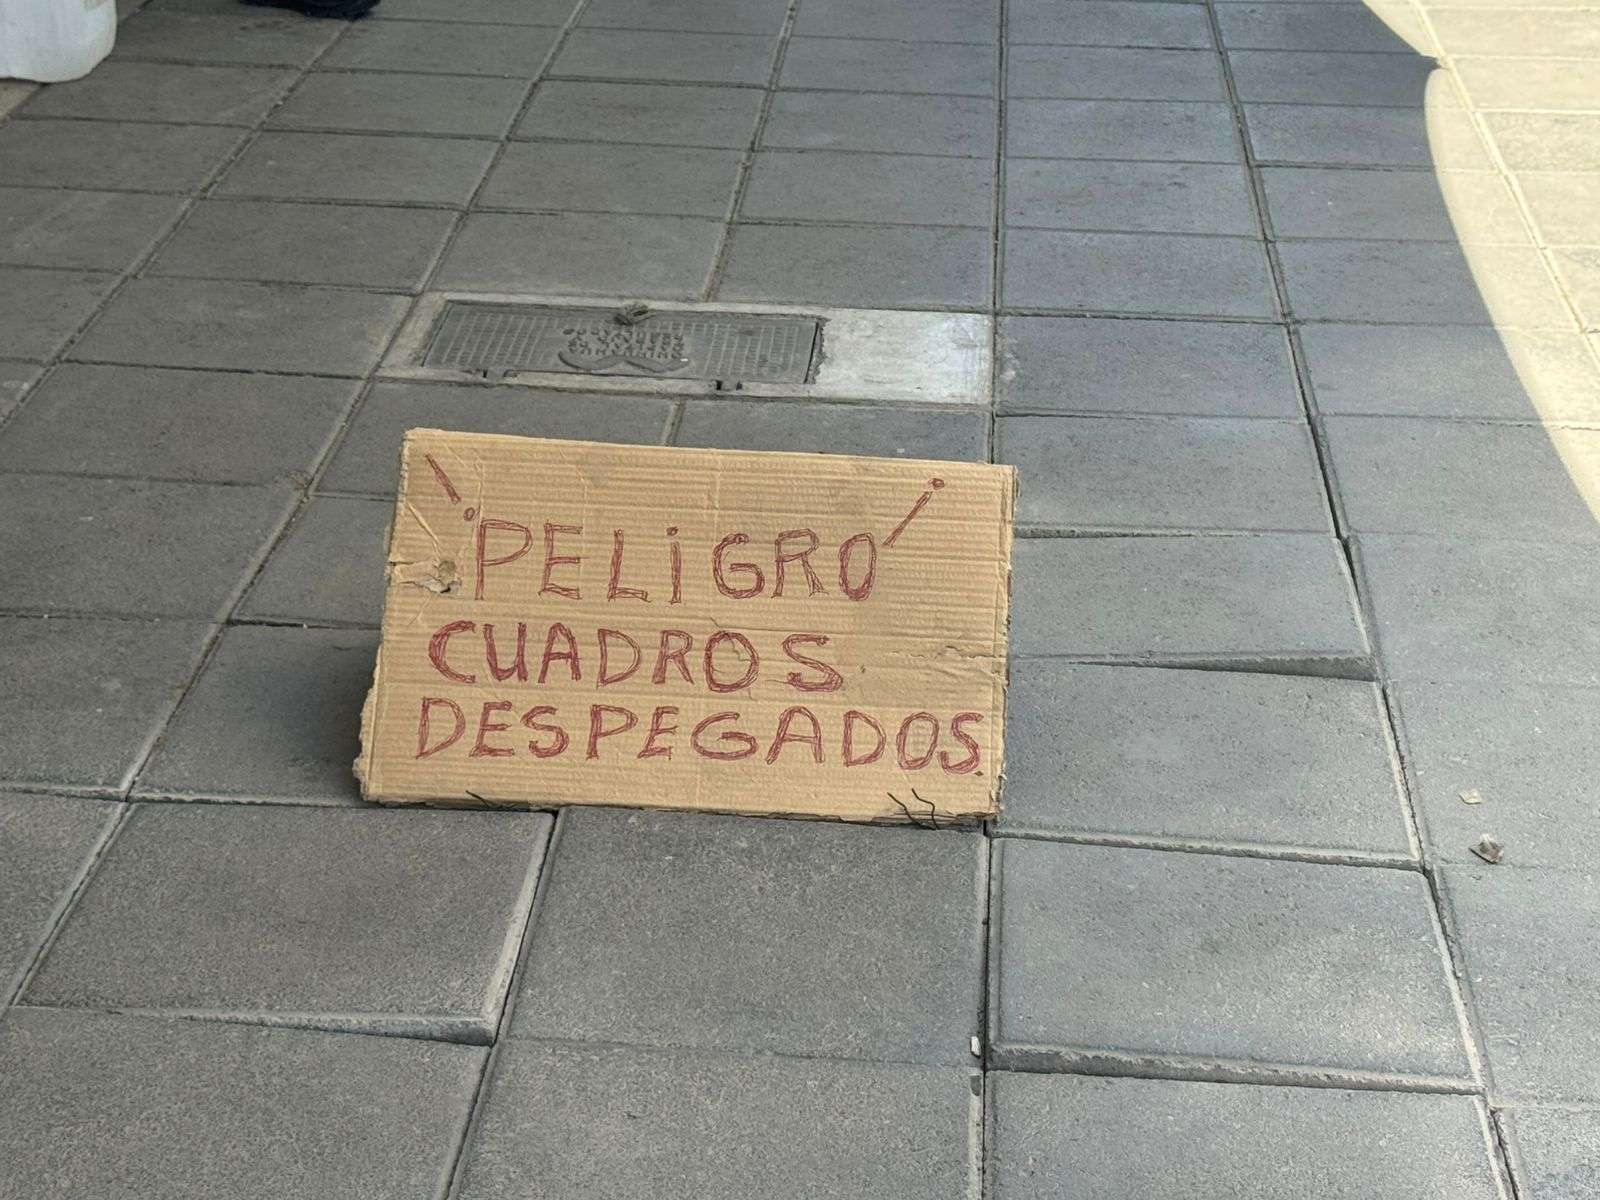 ¡PELIGRO!
CUADROS
DESPEGADOS.